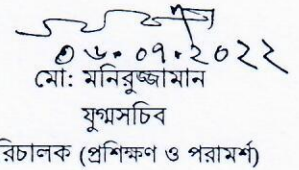 ০৬.০৭.২০২২
মো: মনিরুজ্জামান
যুগ্মসচিব
রিচালক (প্রশিক্ষণ ও পরামর্শ)